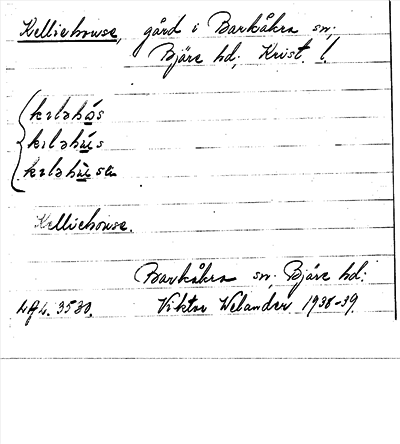 Kelliehouse, gård i Barkåkra sn;
Bjäre hd; Krist. l.
kıləhås
kıləhu̇s
kıləhu̇sa
Kelliehouse.
Barkåkra sn; Bjäre hd:
LAL. 3530. Viktor Welander 1938-39.